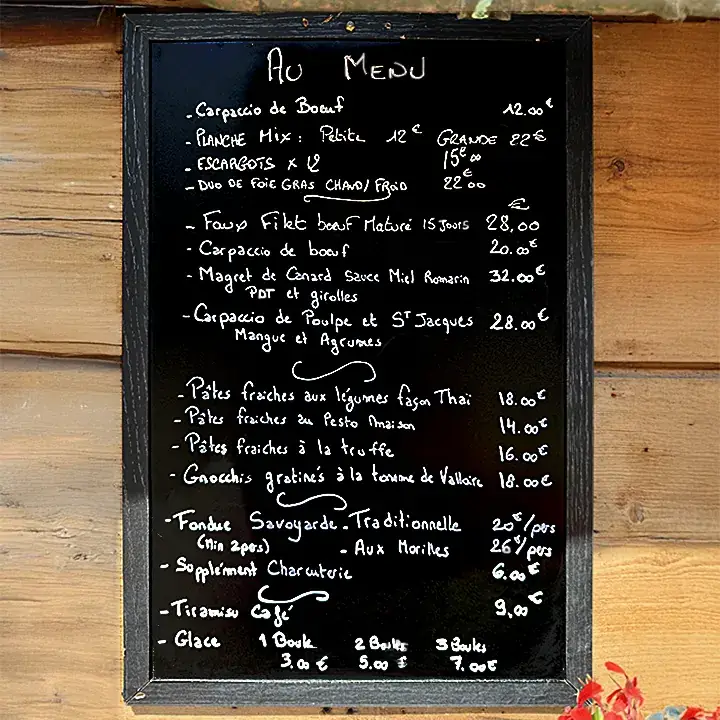 Au Menu
- Carpaccio de Boeuf 12.00€
- PLANCHE Mix : Petite 12€ GRANDE 22€
- ESCARGOTS x 12 15€00
- DUO DE FOIE GRAS CHAUD/FROID 22€00
- Faux Filet boeuf Maturé 15 Jours 28,00€
- Carpaccio de boeuf 20.00€
- Magret de Canard Sauce Miel Romarin 32.00€
PDT et girolles
- Carpaccio de Poulpe et ST Jacques 28.00€
Mangue et Agrumes
- Pâtes fraiches aux légumes façon Thaï 18.00€
- Pâtes fraiches au Pesto maison 14.00€
- Pâtes fraiches à la truffe 16.00€
- Gnocchis gratinés à la tomme de Valloire 18.00€
- Fondue Savoyarde - Traditionnelle 20€/pers
(Min 2pers) - Aux Morilles 26€/pers
- Supplément Charcuterie 6.00€
- Tiramisu Café 9,00€
- Glace 1 Boule 2 Boules 3 Boules
3.00 € 5.00 € 7.00€